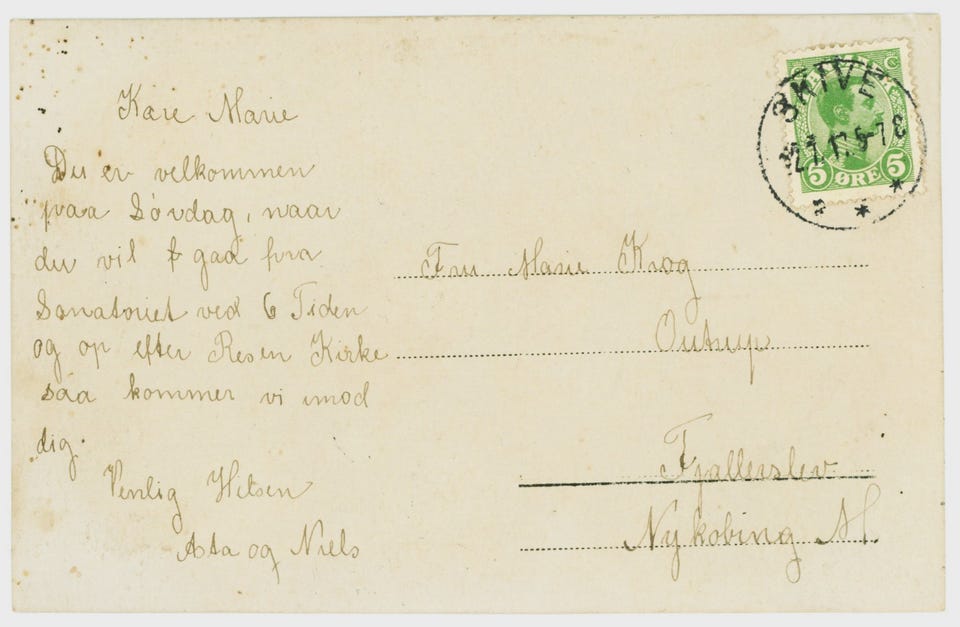 Kære Marie
Du er velkommen
paa Sövdag, naar
du vil gaa fra
Sanatoriet ved 6 Tiden
og op efter Resen Kirke
saa kommer vi imod
dig.
Venlig Hilsen
Asta og Niels
SKIVE
5 ØRE 5
Fru Marie Krog
Outrup
Fjallerslev
Nykobing M.